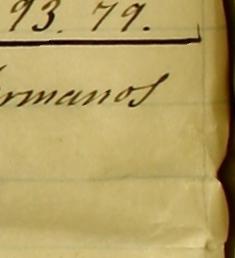 93. 79.
ermanos